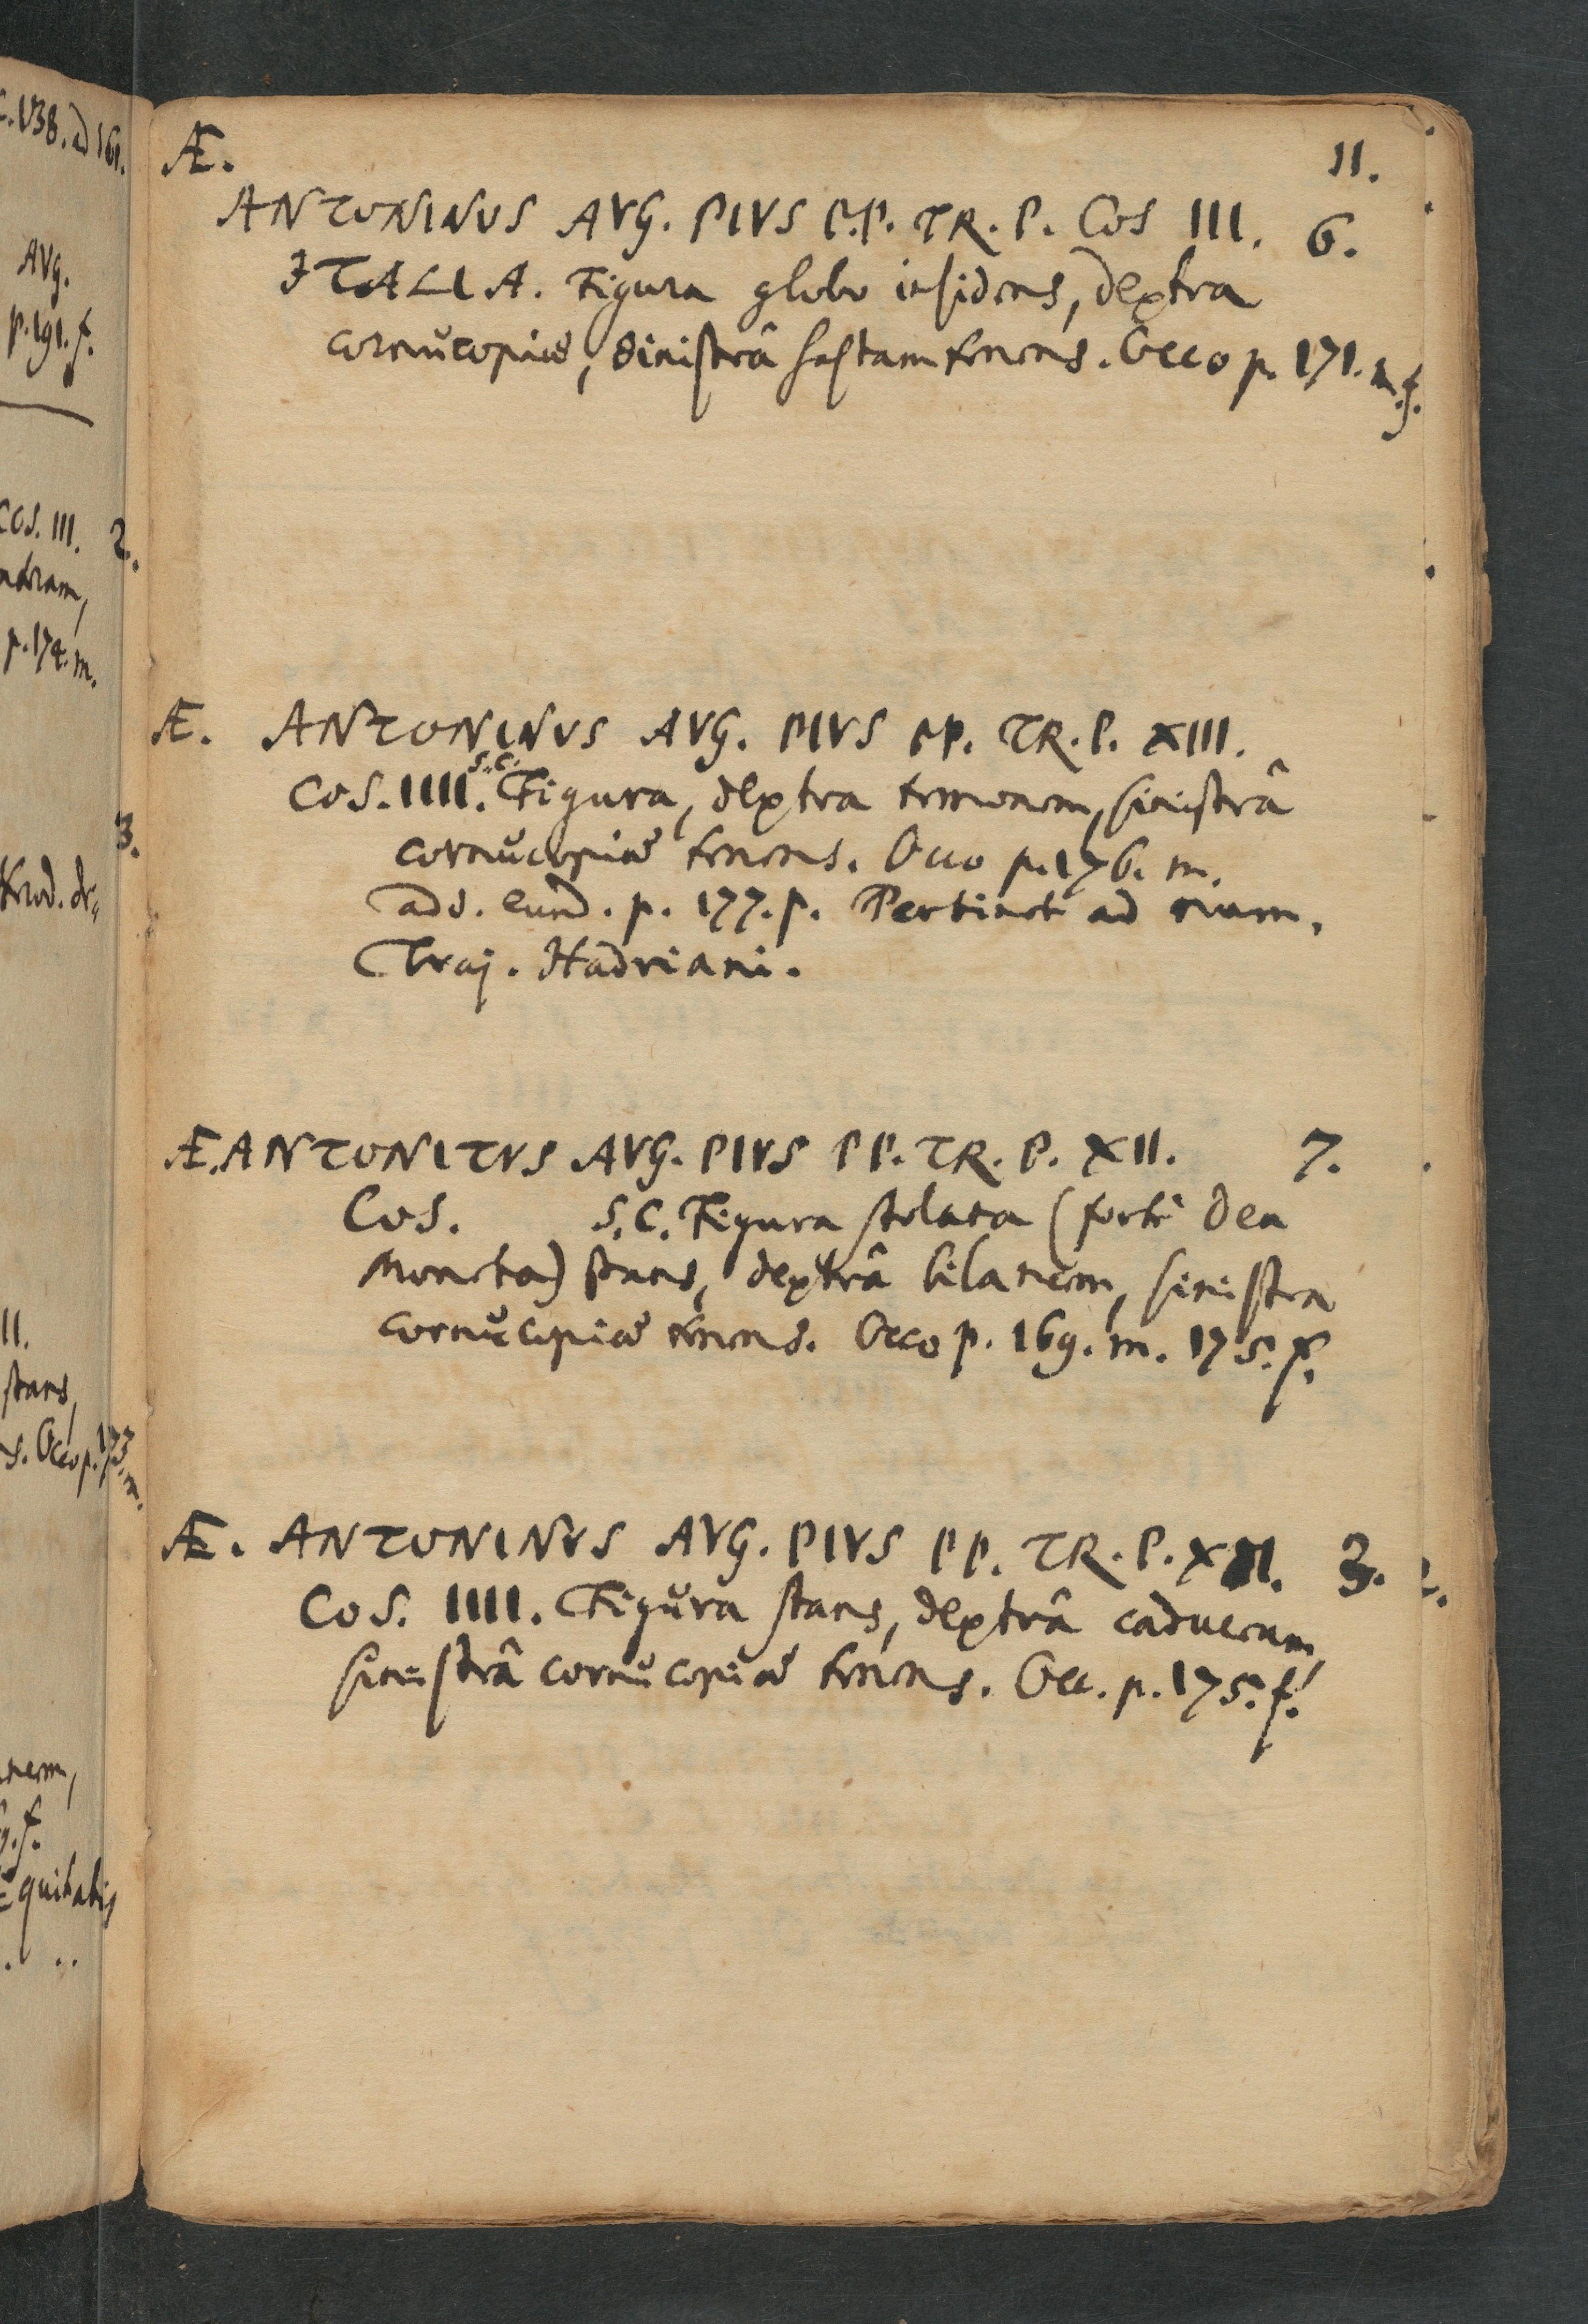 Æ. 11.
ANTONINUS AVG. PIVS P.P. TR. P. COS III. 6.
ITALIA. Figura globo insidens, dextra
cornucopiæ, sinistrâ hastam tenens. Occo p. 171. m.f.
Æ. ANTONINVS AVG. PIVS PP. TR. P. XIII.
COS. IIII. S.C. Figura, dextra temonem, sinistrâ
cornucopiæ tenens. Occo p. 176. m.
add. eund. p. 177. p. Pertinet ad num.
Traj. Hadriani.
Æ. ANTONITVS AVG. PIVS PP. TR. P. XII. 7.
COS. S.C. Figura stolata (fortè Dea
Moneta) stans, dextrâ bilancem, sinistra
cornucopiæ tenens. Occo p. 169. m. 175. f.
Æ. ANTONINVS AVG. PIVS PP. TR. P. XII. 3.
COS. IIII. Figura stans, dextrâ caduceum,
sinistrâ cornucopiæ tenens. Occ. p. 175. f.
c. 138. ad 161.
AVG.
p. 191. f.
COS. III. 2.
p. 174. m.
3.
II.
stans,
s. Occo p. 173. m.
Equitatis